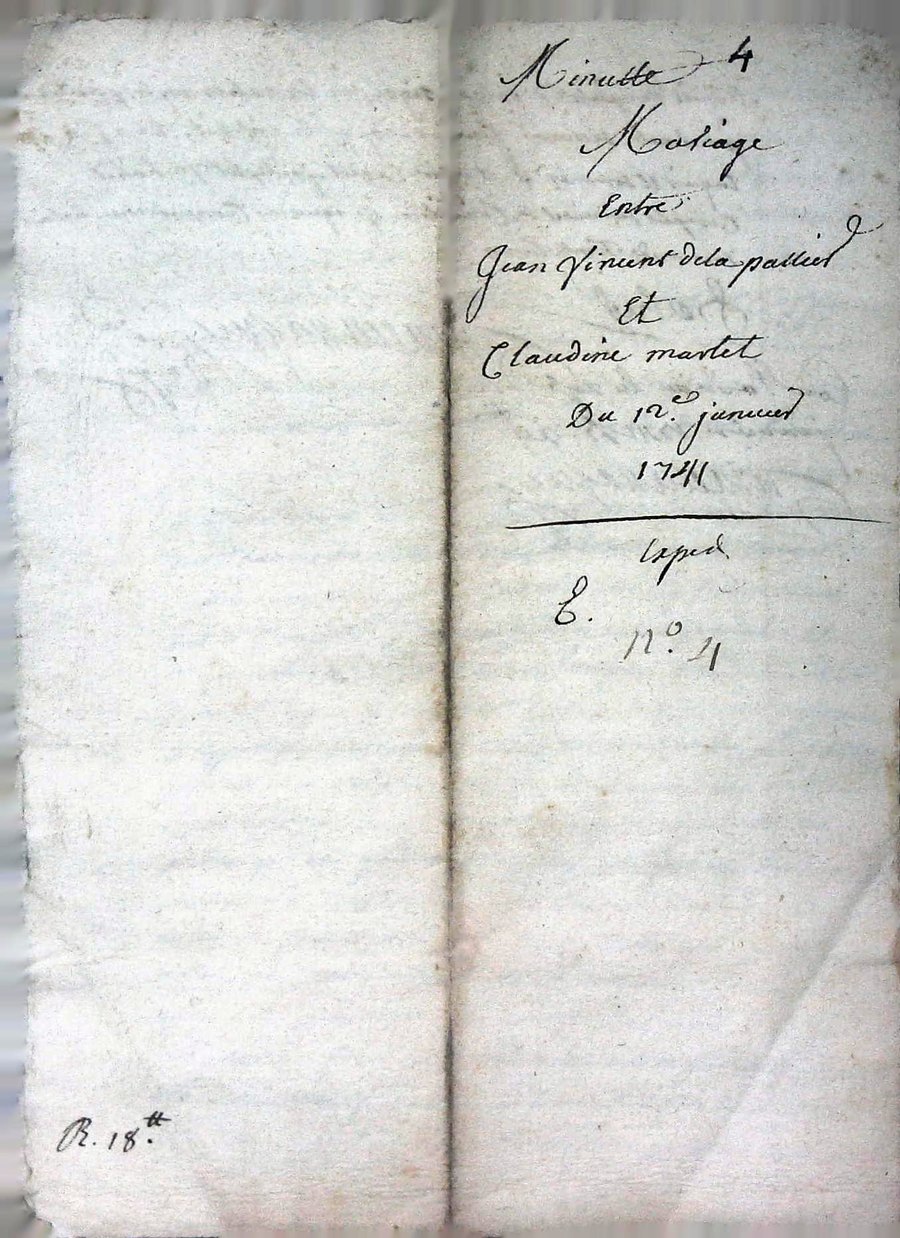 Minutte 4
Mariage
Entre
Jean Vincent dela pallier
Et
Claudine martet
Du 12.e janvier
1741
Exped
E.
n.o 4
R. 18.tt